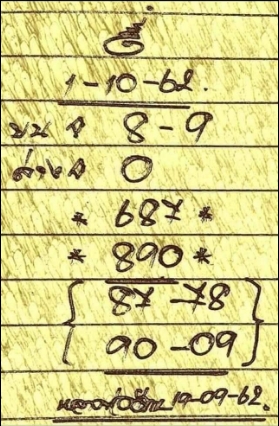 1-10-62.
บน 8-9
ล่าง 0
* 687 *
* 890 *
87-78
90-09
19-09-62.